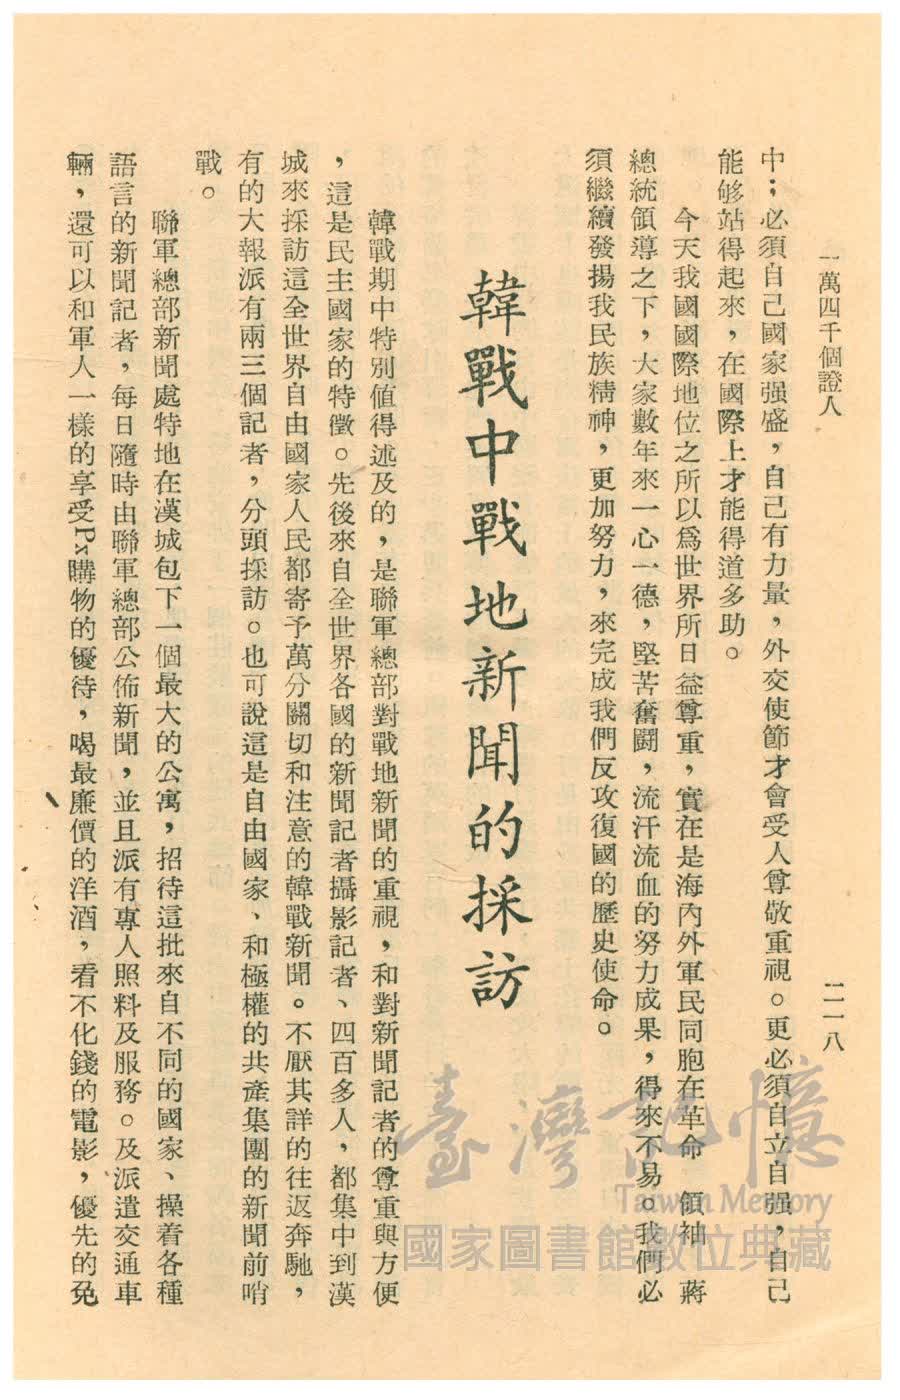 一萬四千個證人
二一八
中；必須自己國家强盛，自己有力量，外交使節才會受人尊敬重視。更必須自立自强，自己
能够站得起來，在國際上才能得道多助。
今天我國國際地位之所以爲世界所日益尊重，實在是海內外軍民同胞在革命　領袖　蔣
總統領導之下，大家數年來一心一德，堅苦奮鬪，流汗流血的努力成果，得來不易。我們必
須繼續發揚我民族精神，更加努力，來完成我們反攻復國的歷史使命。
韓戰中戰地新聞的採訪
韓戰期中特別值得述及的，是聯軍總部對戰地新聞的重視，和對新聞記者的尊重與方便
，這是民主國家的特徵。先後來自全世界各國的新聞記者攝影記者、四百多人，都集中到漢
城來採訪這全世界自由國家人民都寄予萬分關切和注意的韓戰新聞。不厭其詳的往返奔馳，
有的大報派有兩三個記者，分頭採訪。也可說這是自由國家、和極權的共產集團的新聞前哨
戰。
聯軍總部新聞處特地在漢城包下一個最大的公寓，招待這批來自不同的國家、操着各種
語言的新聞記者，每日隨時由聯軍總部公佈新聞，並且派有專人照料及服務。及派遣交通車
輛，還可以和軍人一樣的享受Px購物的優待，喝最廉價的洋酒，看不化錢的電影，優先的免
臺灣記憶
Taiwan Memory
國家圖書館數位典藏